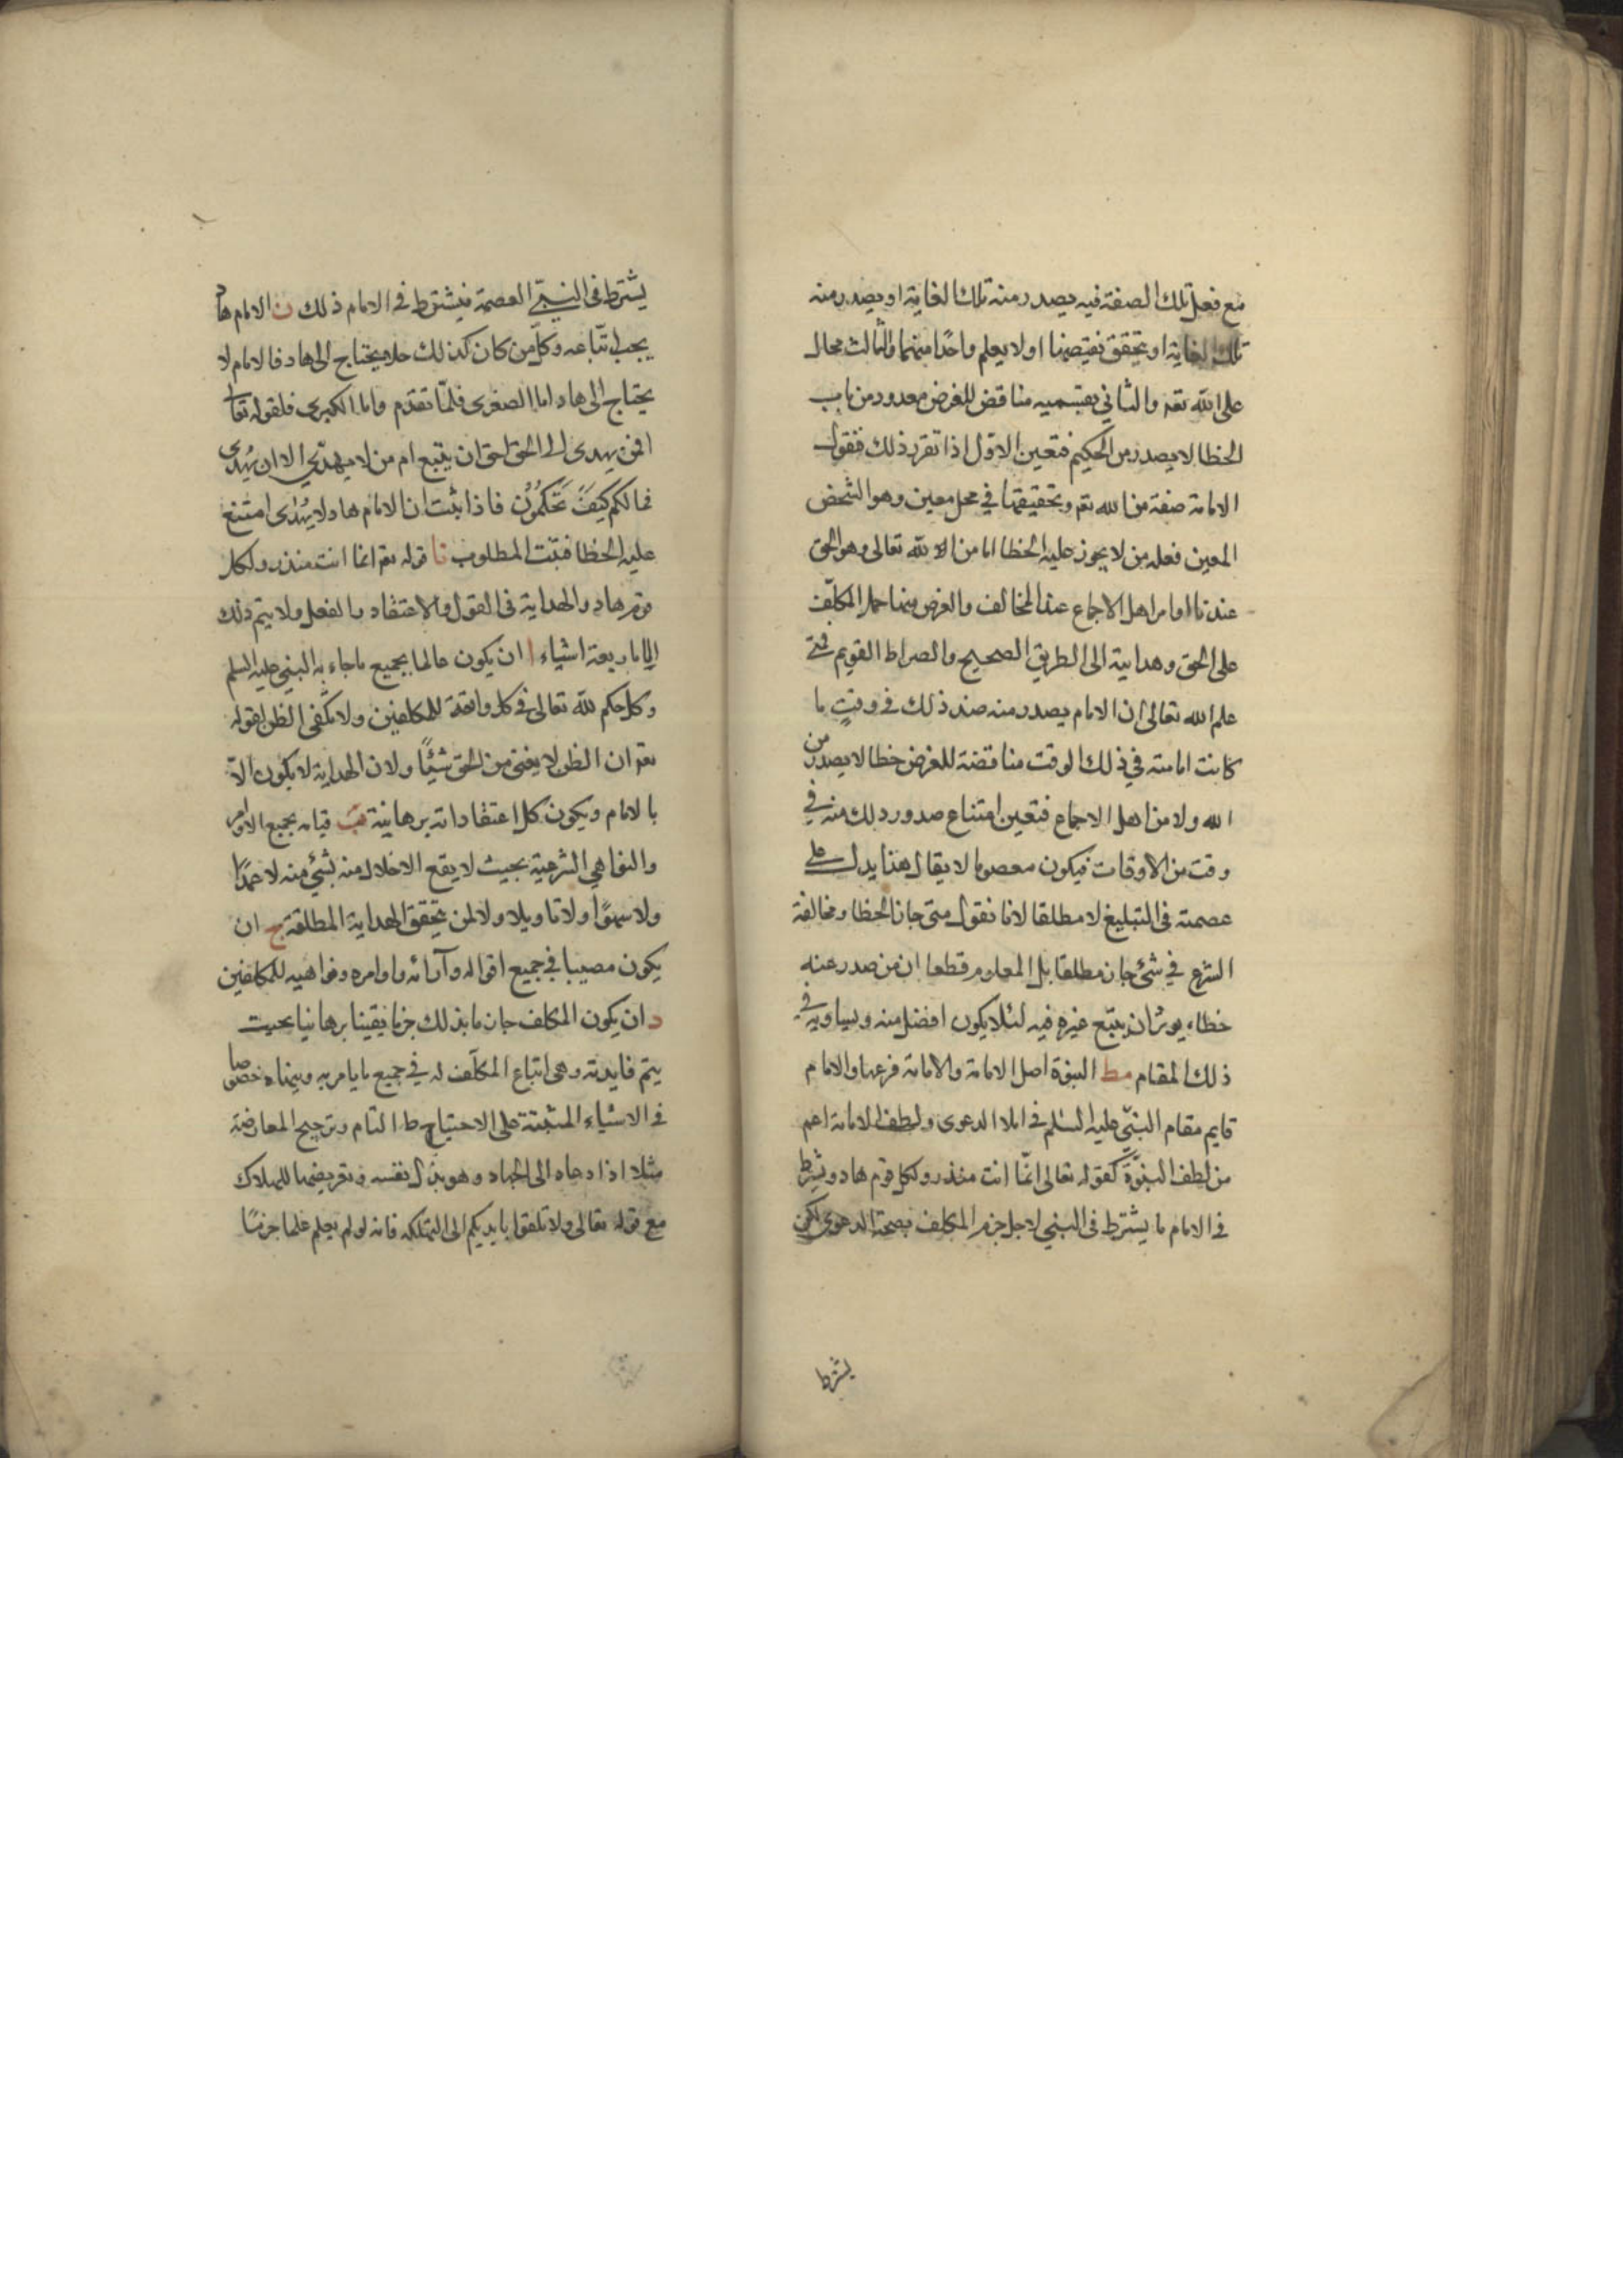 مع فعل تلك الصفة فيه يصدر منه تلك الغاية او يصدر منه
تلك الغاية او يتحقق نقيضها او لا يعلم واحدًا منهما والثالث محال
على الله تعه والثاني بقسميه مناقض للغرض معدود من باب
الخطا لا يصدر من الحكيم فتعين الاوّل اذا تقرر ذلك فنقول
الامامة صفة من الله تعه وتحقيقها في محل معين وهو الشخص
المعين فعله من لا يجوز عليه الخطا اما من الله تعالى وهو الحق
عندنا او من اهل الاجماع عند المخالف والغرض منها حمل المكلّف
على الحق وهدايته الى الطريق الصحيح والصراط القويم فمتى
علم الله تعالى ان الامام يصدر منه ضد ذلك في وقتٍ ما
كانت امامته في ذلك الوقت مناقضة للغرض خطا لا يصدر من
الله ولا من اهل الاجماع فتعين امتناع صدور ذلك منه في
وقت من الاوقات فيكون معصوما لا يقال هذا يدل على
عصمته في التبليغ لا مطلقا لانا نقول متى جاز الخطا ومخالفة
الشرع في شئ جاز مطلقا بل المعلوم قطعا ان من صدر عنه
خطاء يوثر ان يتبع غيره فيه لئلا يكون افضل منه ويساويه في
ذلك المقام مط النبوة اصل الامامة والامامة فرعها والامام
قايم مقام النبيّ عليه السلم في املا الدعوى ولطف الامامة اعم
من لطف النبوّة كقوله تعالى انّما انت منذر ولكل قوم هاد ويشترط
في الامام ما يشترط في النبي لاجل جزم المكلف بصحة الدعوى لكن
يشترط
يشترط في النبيّ العصمة فيشترط في الامام ذلك ن الامام هاد
يجب اتّباعه وكل من كان كذلك فلا يحتاج الى هاد فالامام لا
يحتاج الى هاد اما الصغرى فلمّا تقدّم واما الكبرى فلقوله تعالى
افمن يهدى الى الحق احق ان يتبع ام من لا يهدّي الا ان يُهدى
فما لكم كيفَ تَحكمُوُن فاذا ثبت ان الامام هاد لا يُهدى امتنع
عليه الخطا فثبت المطلوب نا قوله تعه انما انت منذر ولكل
قوم هاد والهداية في القول والاعتقاد والفعل ولا يتم ذلك
الا باربعة اشياء ا ان يكون عالما بجميع ما جاء به النبي عليه السلم
وكل حكم لله تعالى في كل واقعة للمكلفين ولا يكفى الظن لقوله
تعه ان الظن لا يغني من الحق شيئًا ولان الهداية لا يكون الاّ
بالامام ويكون كل اعتقاداته برهانية ب قيامه بجميع الاوامر
والنواهي الشرعية بحيث لا يقع الاخلال منه بشئ منه لا عمدًا
ولا سهوًا ولا تاويلا والا لمن يتحقق الهداية المطلقة ج ان
يكون مصيبا في جميع اقواله وآرائه واوامره ونواهيه للمكلفين
د ان يكون المكلف جازما بذلك جزما يقينا برهانيا بحيث
يتم فايدته وهي اتباع المكلّف له في جميع ما يامر به وينهاه خصوصا
في الاشياء المبتنية على الاحتياط التام وترجيح المعارضة
مثلا اذا دعاه الى الجهاد وهو بذل نفسه وتعريضها للهلاك
مع قوله تعالى ولا تلقوا بايديكم الى التهلكة فانه لو لم يعلم علما جزمًا